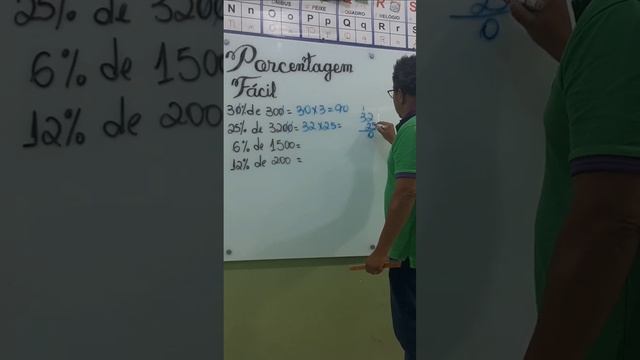 ÔNIBUS PEIXE QUADRO RELÓGIO
N n O o P p Q q R r
Porcentagem
Fácil
30% de 300 = 30 x 3 = 90
25% de 3200 = 32 x 25 =
6% de 1500 =
12% de 200 =
32
25
0
25% de 3200
6% de 1500
12% de 200
25
0